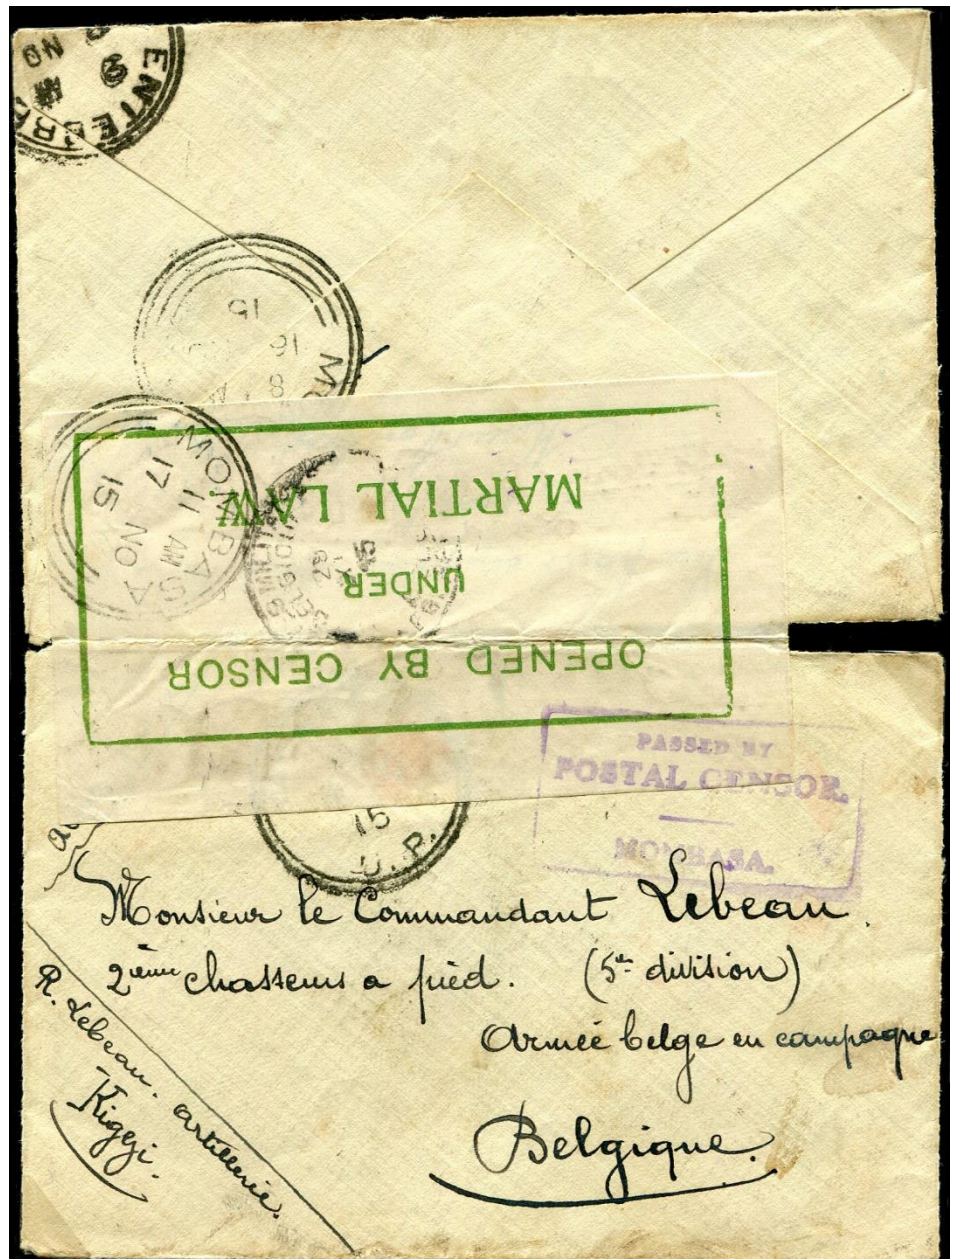 ENTEBBE
NO
15
16
8
MO
MOMBASA
11 AM
17 NO
15
OPENED BY CENSOR
UNDER
MARTIAL LAW.
PASSED BY
POSTAL CENSOR.
MOMBASA.
15
U.P.
Monsieur le Commandant Lebeau.
2ième chasseurs a pied. (5e division)
Armée belge en campagne
Belgique.
R. Lebeau. artillerie.
Kigezi.